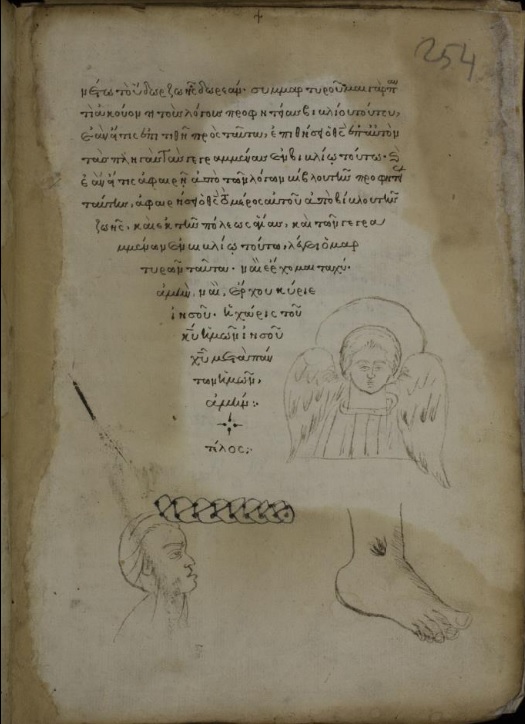 254
νέτω τὸ ὕδωρ ζωῆς δωρεάν. συμμαρτυροῦμαι γὰρ παν
τὶ ἀκούοντι τοὺς λόγους προφητείας βιβλίου τούτου,
ἐάν τις ἐπιτιθῇ πρὸς ταῦτα, ἐπιθήσει ὁ θς ἐπ' αὐτὸν
τὰς πληγὰς τὰς γεγραμμένας ἐν βιβλίῳ τούτῳ. καὶ
ἐάν τις ἀφαιρῇ ἀπὸ τῶν λόγων βίβλου τῆς προφητεί
ταύτης, ἀφαιρήσει ὁ θς τὸ μέρος αὐτοῦ ἀπὸ βιβλου τῆς
ζωῆς, καὶ ἐκ τῆς πόλεως ἁγίας, καὶ τῶν γεγρα
μμένων ἐν βιβλίῳ τούτῳ, λέγει ὁ μαρ
τυρῶν ταῦτα. ναὶ ἔρχομαι ταχύ.
ἀμὴν, ναὶ, ἔρχου κύριε
ἰησοῦ. ἡ χάρις τοῦ
κῦ ἡμῶν ἰησοῦ
χῦ μετὰ πάν
των ἡμῶν,
ἀμήν:
τέλος: